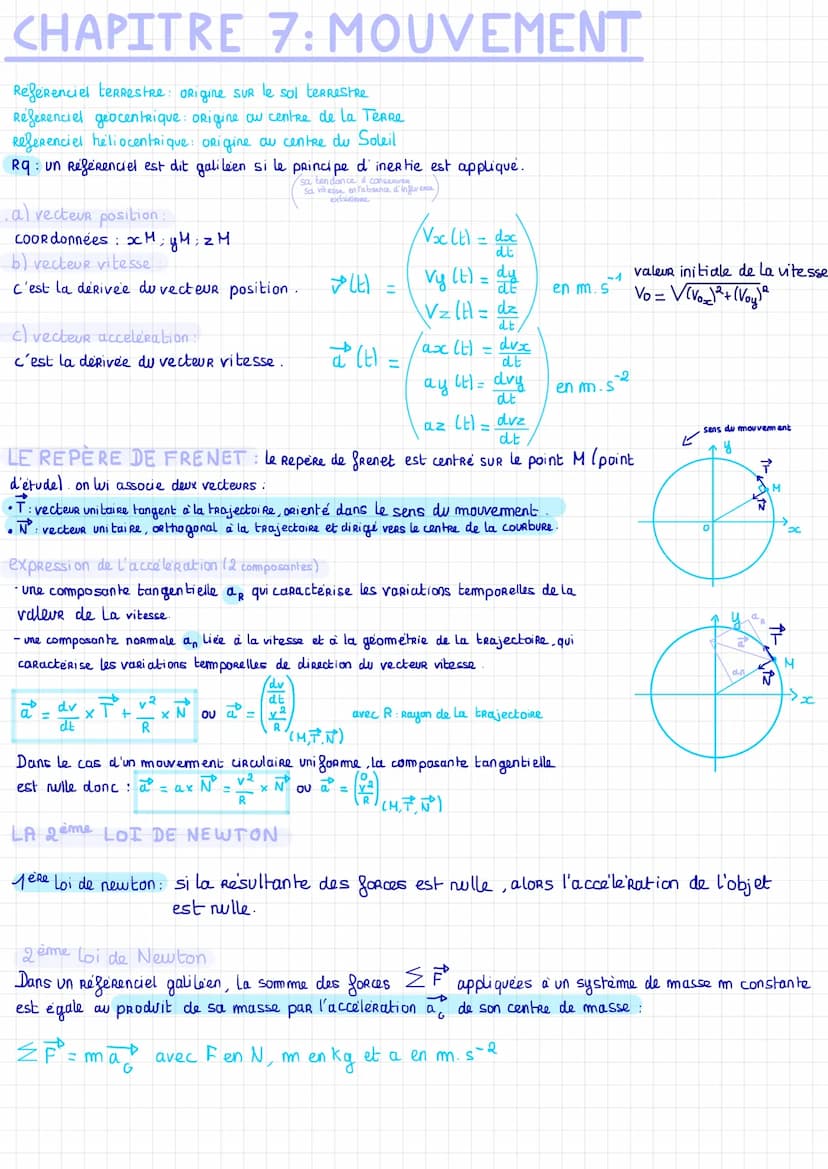 CHAPITRE 7: MOUVEMENT
Référenciel terrestre: origine sur le sol terrestre
Référenciel géocentrique: origine au centre de la Terre
Référenciel héliocentrique: origine au centre du Soleil
Rq: un référenciel est dit galiléen si le principe d'inertie est appliqué.
(sa tendance à conserver
sa vitesse en l'absence d'influence
extérieure)
a) vecteur position:
coordonnées : xM ; yM ; zM
b) vecteur vitesse
c'est la dérivée du vecteur position.
v⃗(t) = (Vx(t) = dx/dt
Vy(t) = dy/dt
Vz(t) = dz/dt) en m.s⁻¹
valeur initiale de la vitesse
V₀ = √(V₀x)²+(V₀y)²
c) vecteur accélération:
c'est la dérivée du vecteur vitesse.
a⃗(t) = (ax(t) = dvx/dt
ay(t) = dvy/dt
az(t) = dvz/dt) en m.s⁻²
LE REPÈRE DE FRENET : le repère de frenet est centré sur le point M (point
d'étude). on lui associe deux vecteurs :
• T⃗ : vecteur unitaire tangent à la trajectoire, orienté dans le sens du mouvement.
• N⃗ : vecteur unitaire, orthogonal à la trajectoire et dirigé vers le centre de la courbure.
sens du mouvement
y
T⃗
M
N⃗
O
x
expression de l'accélération (2 composantes)
- une composante tangentielle aR qui caractérise les variations temporelles de la
valeur de la vitesse.
- une composante normale an liée à la vitesse et à la géométrie de la trajectoire, qui
caractérise les variations temporelles de direction du vecteur vitesse.
y
aR
T⃗
a⃗
M
an
N⃗
x
a⃗ = dv/dt × T⃗ + v²/R × N⃗ ou a⃗ = (dv/dt
v²/R) (M,T⃗,N⃗)
avec R : rayon de la trajectoire
Dans le cas d'un mouvement circulaire uniforme, la composante tangentielle
est nulle donc : a⃗ = a× N⃗ = v²/R × N⃗ ou a⃗ = (0
v²/R) (M,T⃗,N⃗)
LA 2ème LOI DE NEWTON
1ère loi de newton: si la résultante des forces est nulle, alors l'accélération de l'objet
est nulle.
2ème loi de Newton
Dans un référenciel galiléen, la somme des forces ΣF⃗ appliquées à un système de masse m constante
est égale au produit de sa masse par l'accélération a⃗G de son centre de masse :
ΣF⃗ = m a⃗G avec F en N, m en kg et a en m.s⁻²